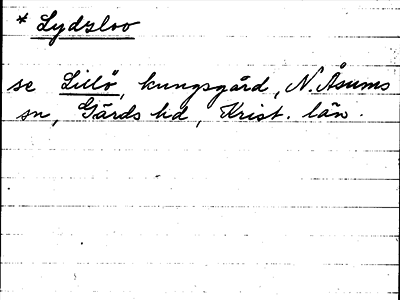 * Lydzloo
se Lillö, kungsgård, N. Åsums
sn, Gärds hd, Krist. län.